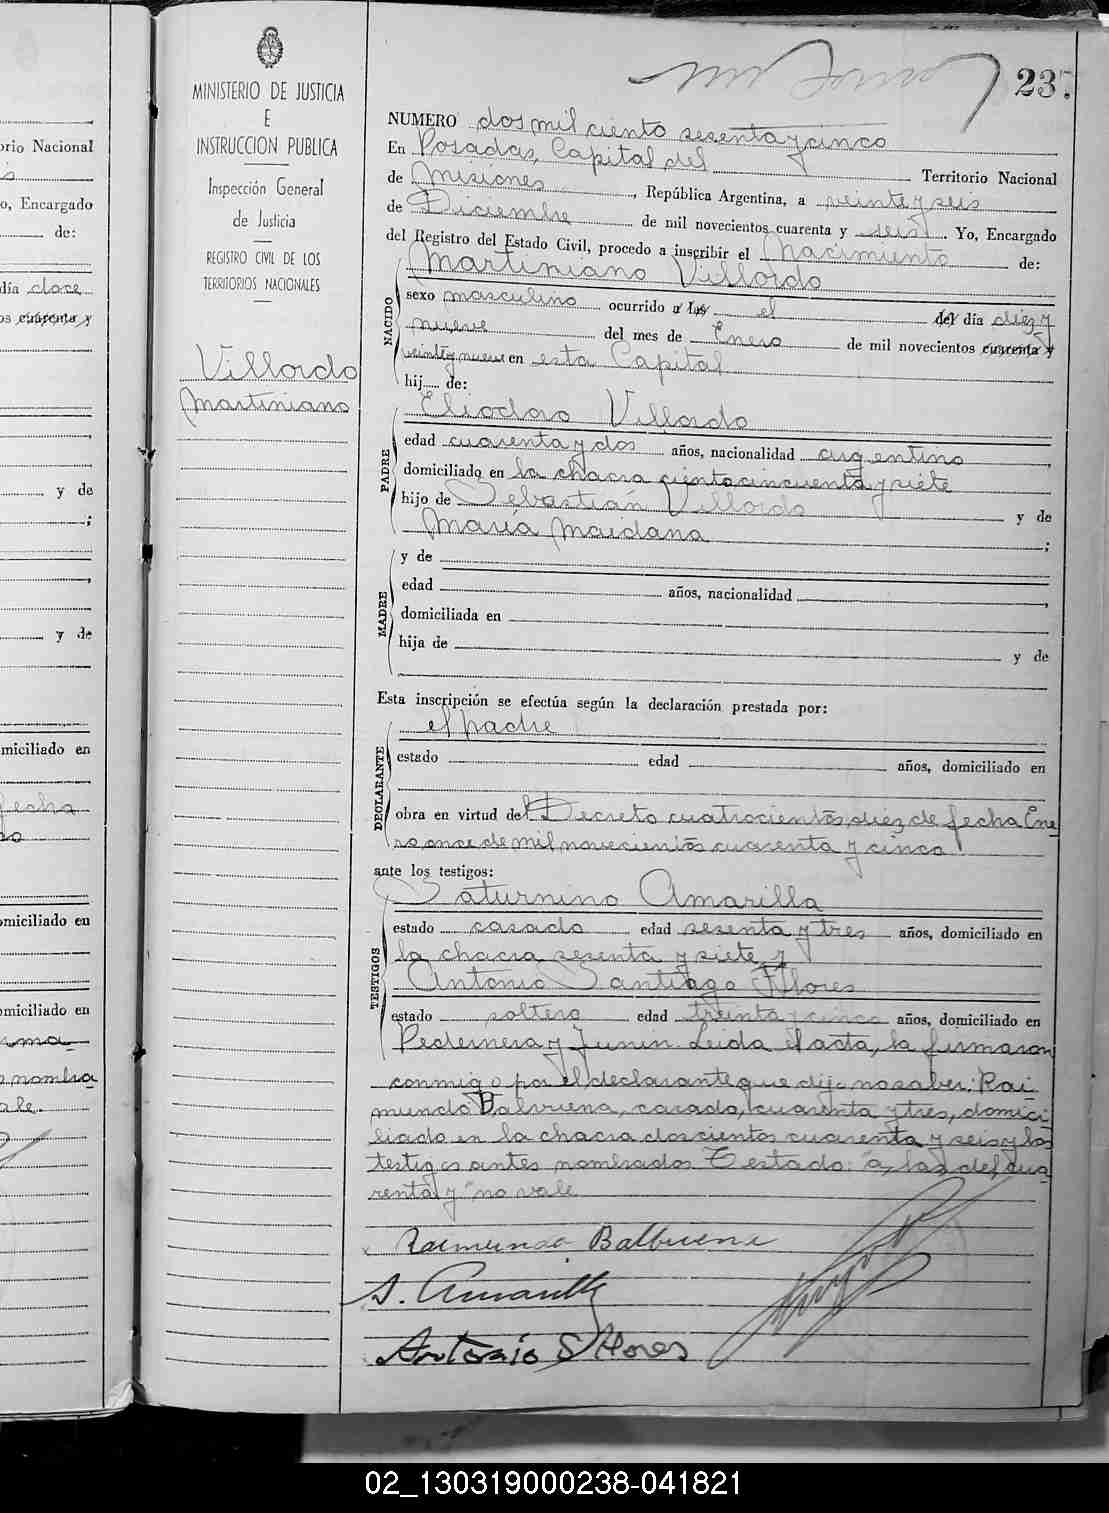 orio Nacional
o, Encargado
de:
día doce
os cuarenta y
y de
;
,
y de
miciliado en
fecha
omiciliado en
omiciliado en
nombra
ale.
MINISTERIO DE JUSTICIA
E
INSTRUCCION PUBLICA
Inspección General
de Justicia
REGISTRO CIVIL DE LOS
TERRITORIOS NACIONALES
Villordo
Martiniano
237
NUMERO dos mil ciento sesenta y cinco
En Posadas, Capital del Territorio Nacional
de Misiones, República Argentina, a veinte y seis
de Diciembre de mil novecientos cuarenta y seis. Yo, Encargado
del Registro del Estado Civil, procedo a inscribir el Nacimiento de:
NACIDO
Martiniano Villordo
sexo masculino ocurrido a las el del día diez y
nueve del mes de Enero de mil novecientos cuarenta y
veinte y nueve en esta Capital
hij de:
PADRE
Eliodoro Villordo
edad cuarenta y dos años, nacionalidad argentino,
domiciliado en la chacra ciento cincuenta y siete
hijo de Sebastián Villordo y de
María Maidana ;
MADRE
y de
edad años, nacionalidad ,
domiciliada en
hija de y de
Esta inscripción se efectúa según la declaración prestada por:
DECLARANTE
el padre
estado edad años, domiciliado en
obra en virtud del Decreto cuatrocientos diez de fecha Ene
ro once de mil novecientos cuarenta y cinco
ante los testigos:
TESTIGOS
Saturnino Amarilla
estado casado edad sesenta y tres años, domiciliado en
la chacra sesenta y siete y
Antonio Santiago Flores
estado soltero edad treinta y cinco años, domiciliado en
Pedernera y Junin. Leida el acta, la firmaron
conmigo por el declarante que dijo no saber: Rai
mundo Balbuena, casado, cuarenta y tres, domici
liado en la chacra doscientos cuarenta y seis y los
testigos antes nombrados. Testado: "a, las, del, cua
renta y" no vale
Raimundo Balbuena
S. Amarilla
Antonio S Flores
02_130319000238-041821